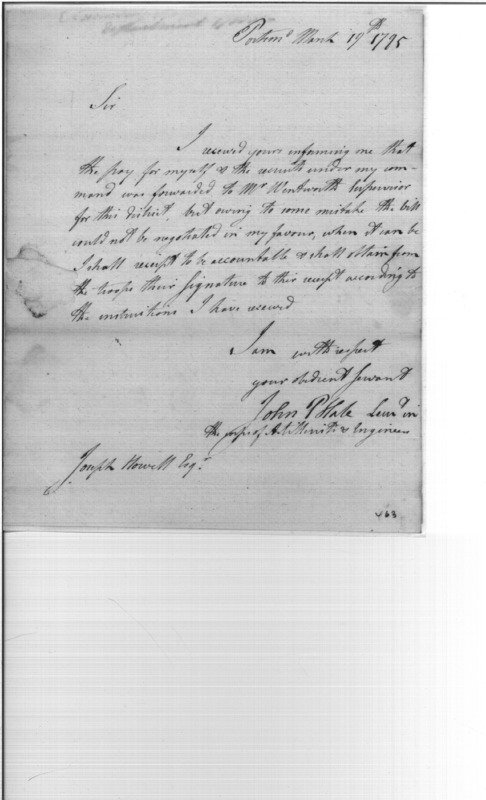 Portsmo March 19th 1795
Sir
I receved yours informing me that
the pay for myself & the recruits under my com-
mand was forwarded to Mr Wentworth Supervisor
for this district, but owing to some mistake the bill
could not be negotiated in my favour, when it can be
I shall receipt to be accountable & shall obtain from
the troops their signature to this receipt according to
the instructions I have receved
I am with respect
your obedient servant
John P Hale Leut in
the corps of Artillerists & Engineers
Joseph Howell Esqr
63